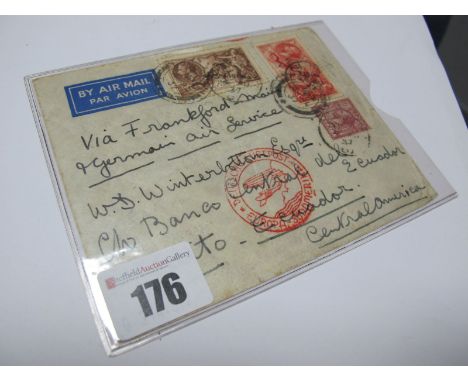 BY AIR MAIL
PAR AVION
Via Frankford & mail
& German air Service
W.D. Winterbottom Esqre
c/o Banco Central del Ecuador
Ecuador.
Central America
SheffieldAuctionGallery
176